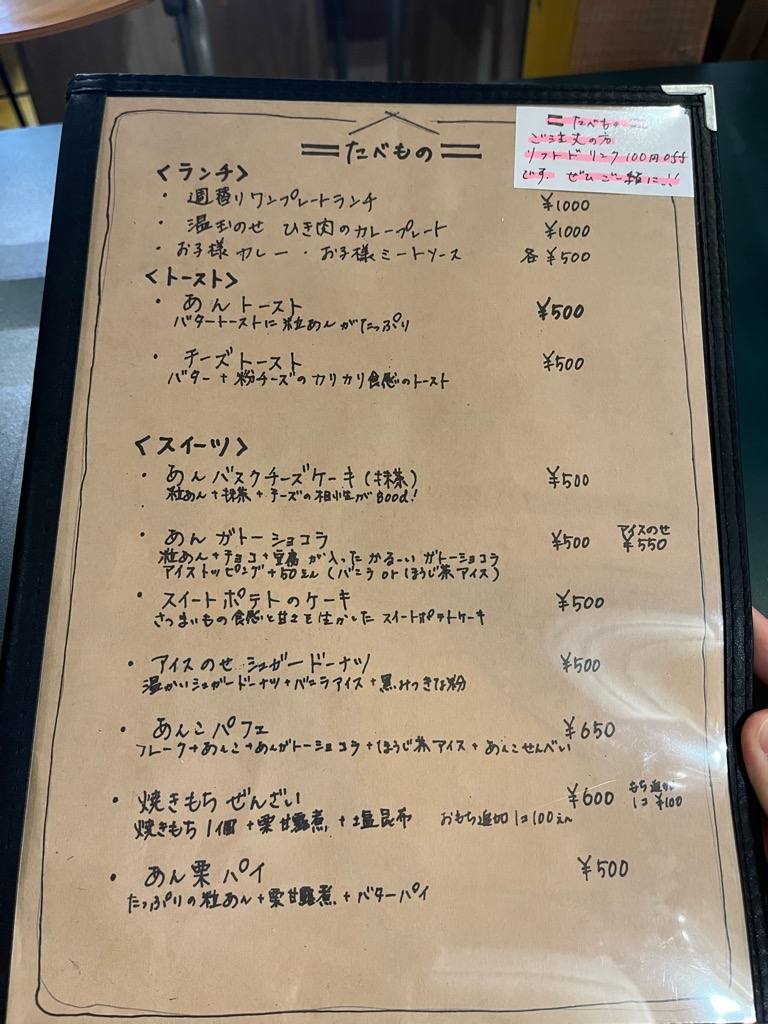 たべもの
= たべもの
ご注文の方
ソフトドリンク100円off
です。ぜひご一緒に!!
<ランチ>
・週替りワンプレートランチ ¥1000
・温玉のせ ひき肉のカレープレート ¥1000
・お子様カレー・お子様ミートソース 各¥500
<トースト>
・あんトースト ¥500
バタートーストに粒あんがたっぷり
・チーズトースト ¥500
バター+粉チーズのカリカリ食感のトースト
<スイーツ>
・あんバスクチーズケーキ(抹茶) ¥500
粒あん+抹茶+チーズの相性がGood!
・あんガトーショコラ ¥500 アイスのせ ¥550
粒あん+チョコ+豆腐が入ったかるーいガトーショコラ
アイストッピング+50えん(バニラorほうじ茶アイス)
・スイートポテトのケーキ ¥500
さつまいもの食感と甘さを生かしたスイートポテトケーキ
・アイスのせシュガードーナツ ¥500
温かいシュガードーナツ+バニラアイス+黒みつきな粉
・あんこパフェ ¥650
フレーク+あんこ+あんガトーショコラ+ほうじ茶アイス+あんこせんべい
・焼きもちぜんざい ¥600 もち追加 1コ¥100
焼きもち1個+栗甘露煮+塩昆布 おもち追加1コ100えん
・あん栗パイ ¥500
たっぷりの粒あん+栗甘露煮+バターパイ